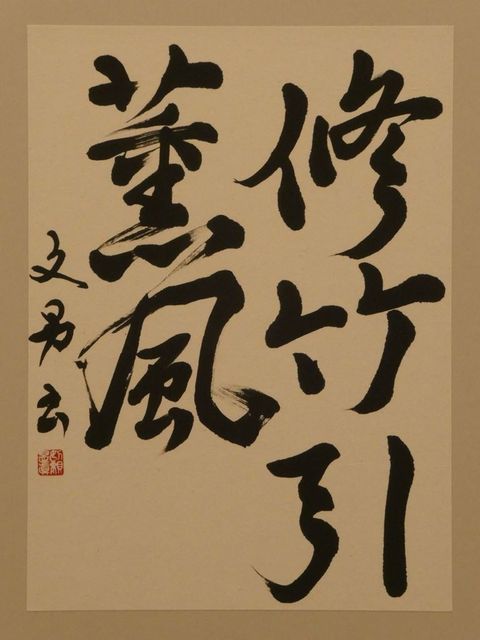 修竹引
薫風
文男書